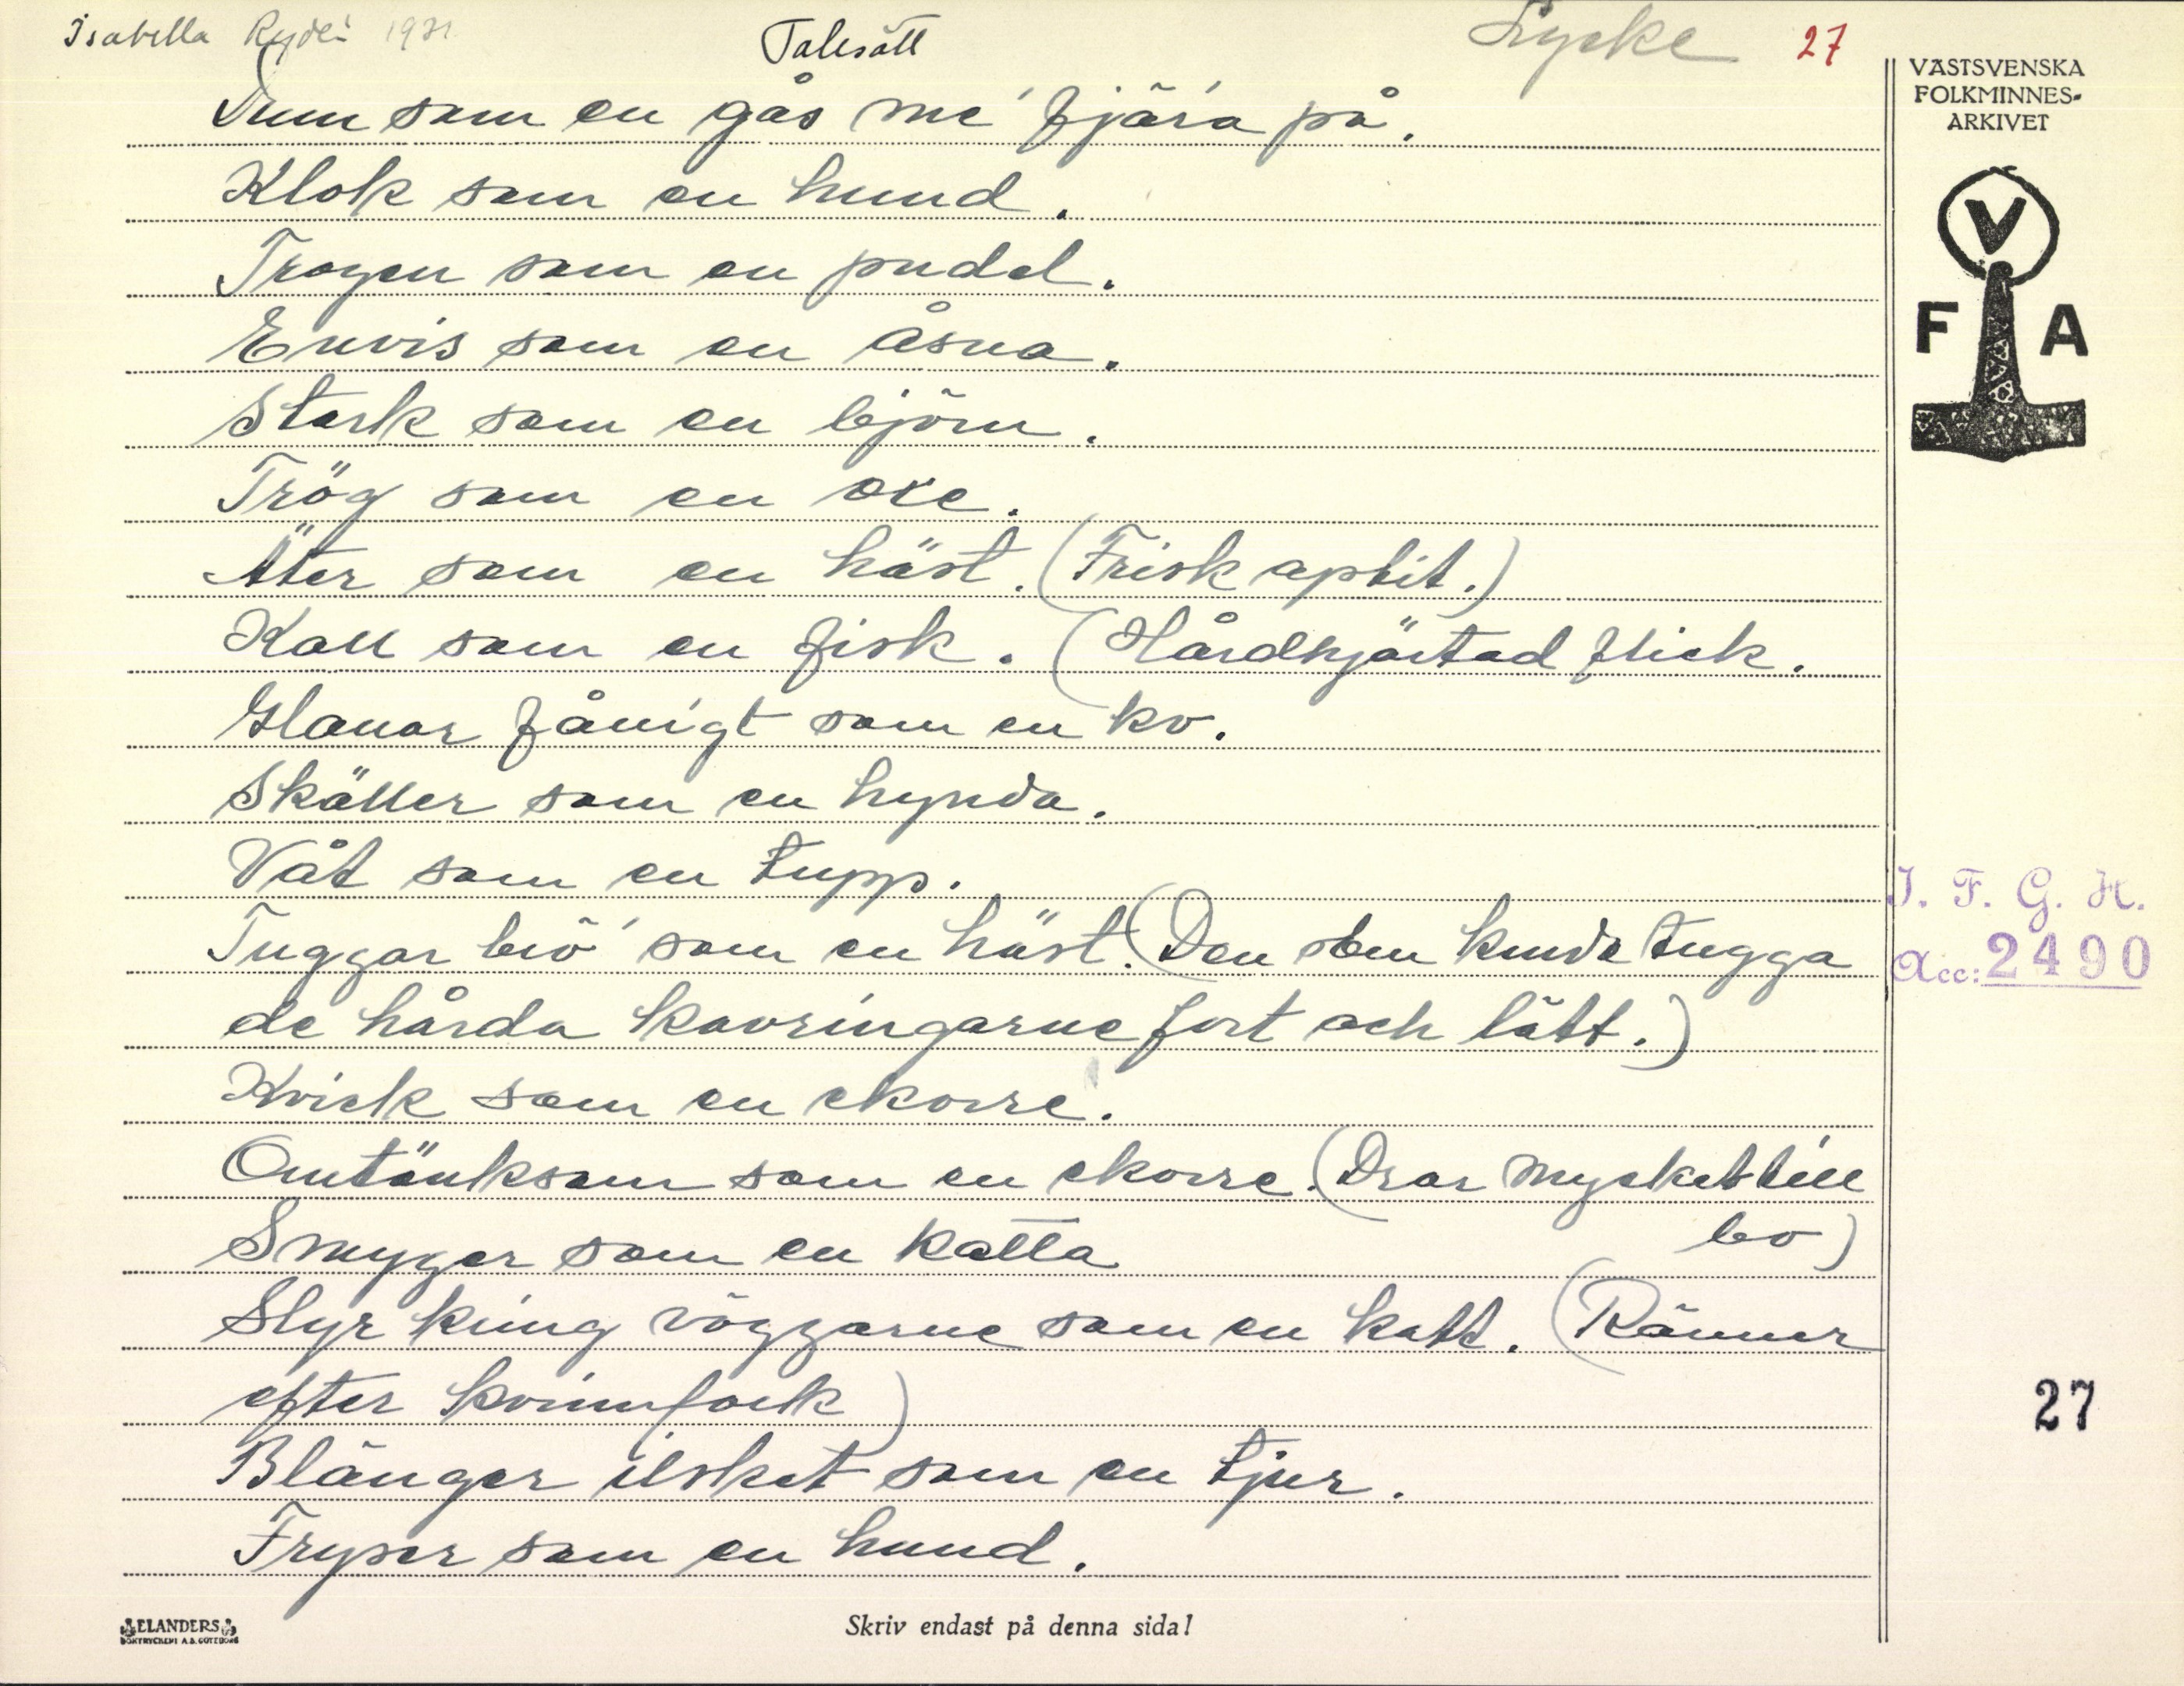 Isabella Rydé 1931
Talesätt
Lycke 27
VÄSTSVENSKA
FOLKMINNES-
ARKIVET
V
F A
Dum som en gås me' fjära på.
Klok som en hund.
Trogen som en pudel.
Envis som en åsna.
Stark som en björn.
Trög som en oxe.
Äter som en häst. (Frisk aptit.)
Kall som en fisk. (Hårdhjärtad flick.
Glanar fånigt som en ko.
Skäller som en hynda.
Våt som en tupp.
Tuggar brö' som en häst. (Den som kunde tugga
de hårda kavringarne fort och lätt.)
I. F. G. H.
Acc: 2490
Kvick som en ekorre.
Omtänksam som en ekorre. (Drar mycket till
bo)
Smyger som en katta
Slyr kring väggarne som en katt. (Ränner
efter kvinnfolk)
27
Blänger ilsket som en tjur.
Fryser som en hund.
ELANDERS
BOKTRYCKERI A.B. GÖTEBORG
Skriv endast på denna sida!